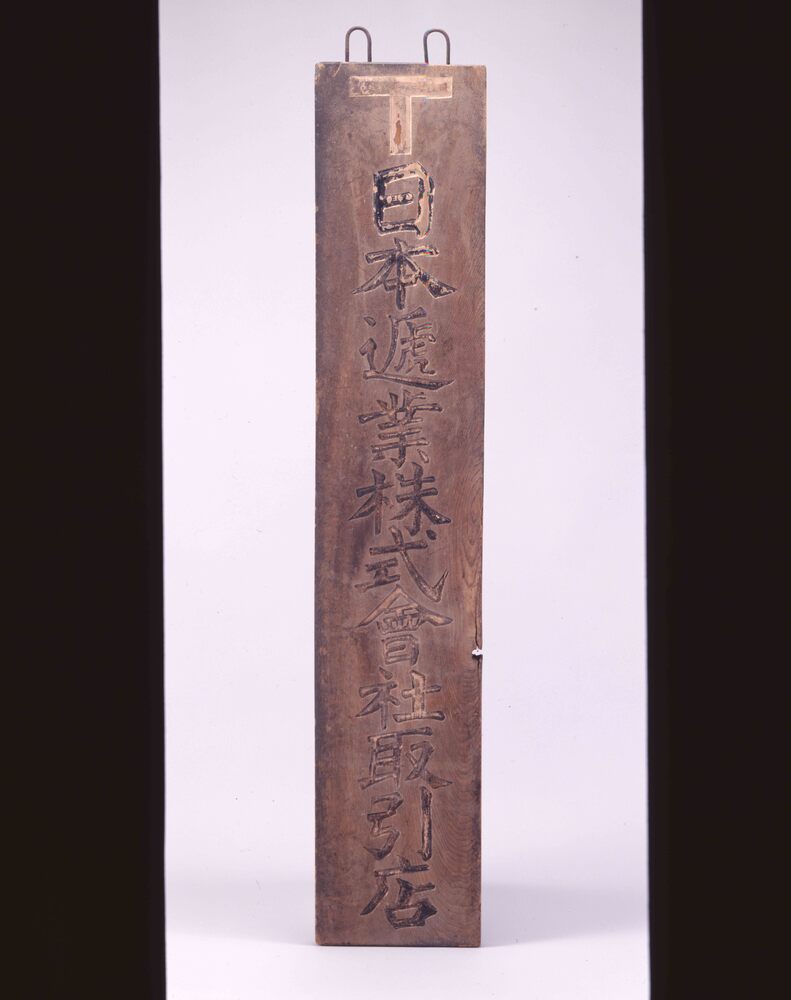 丅
日本遞業株式會社取引店